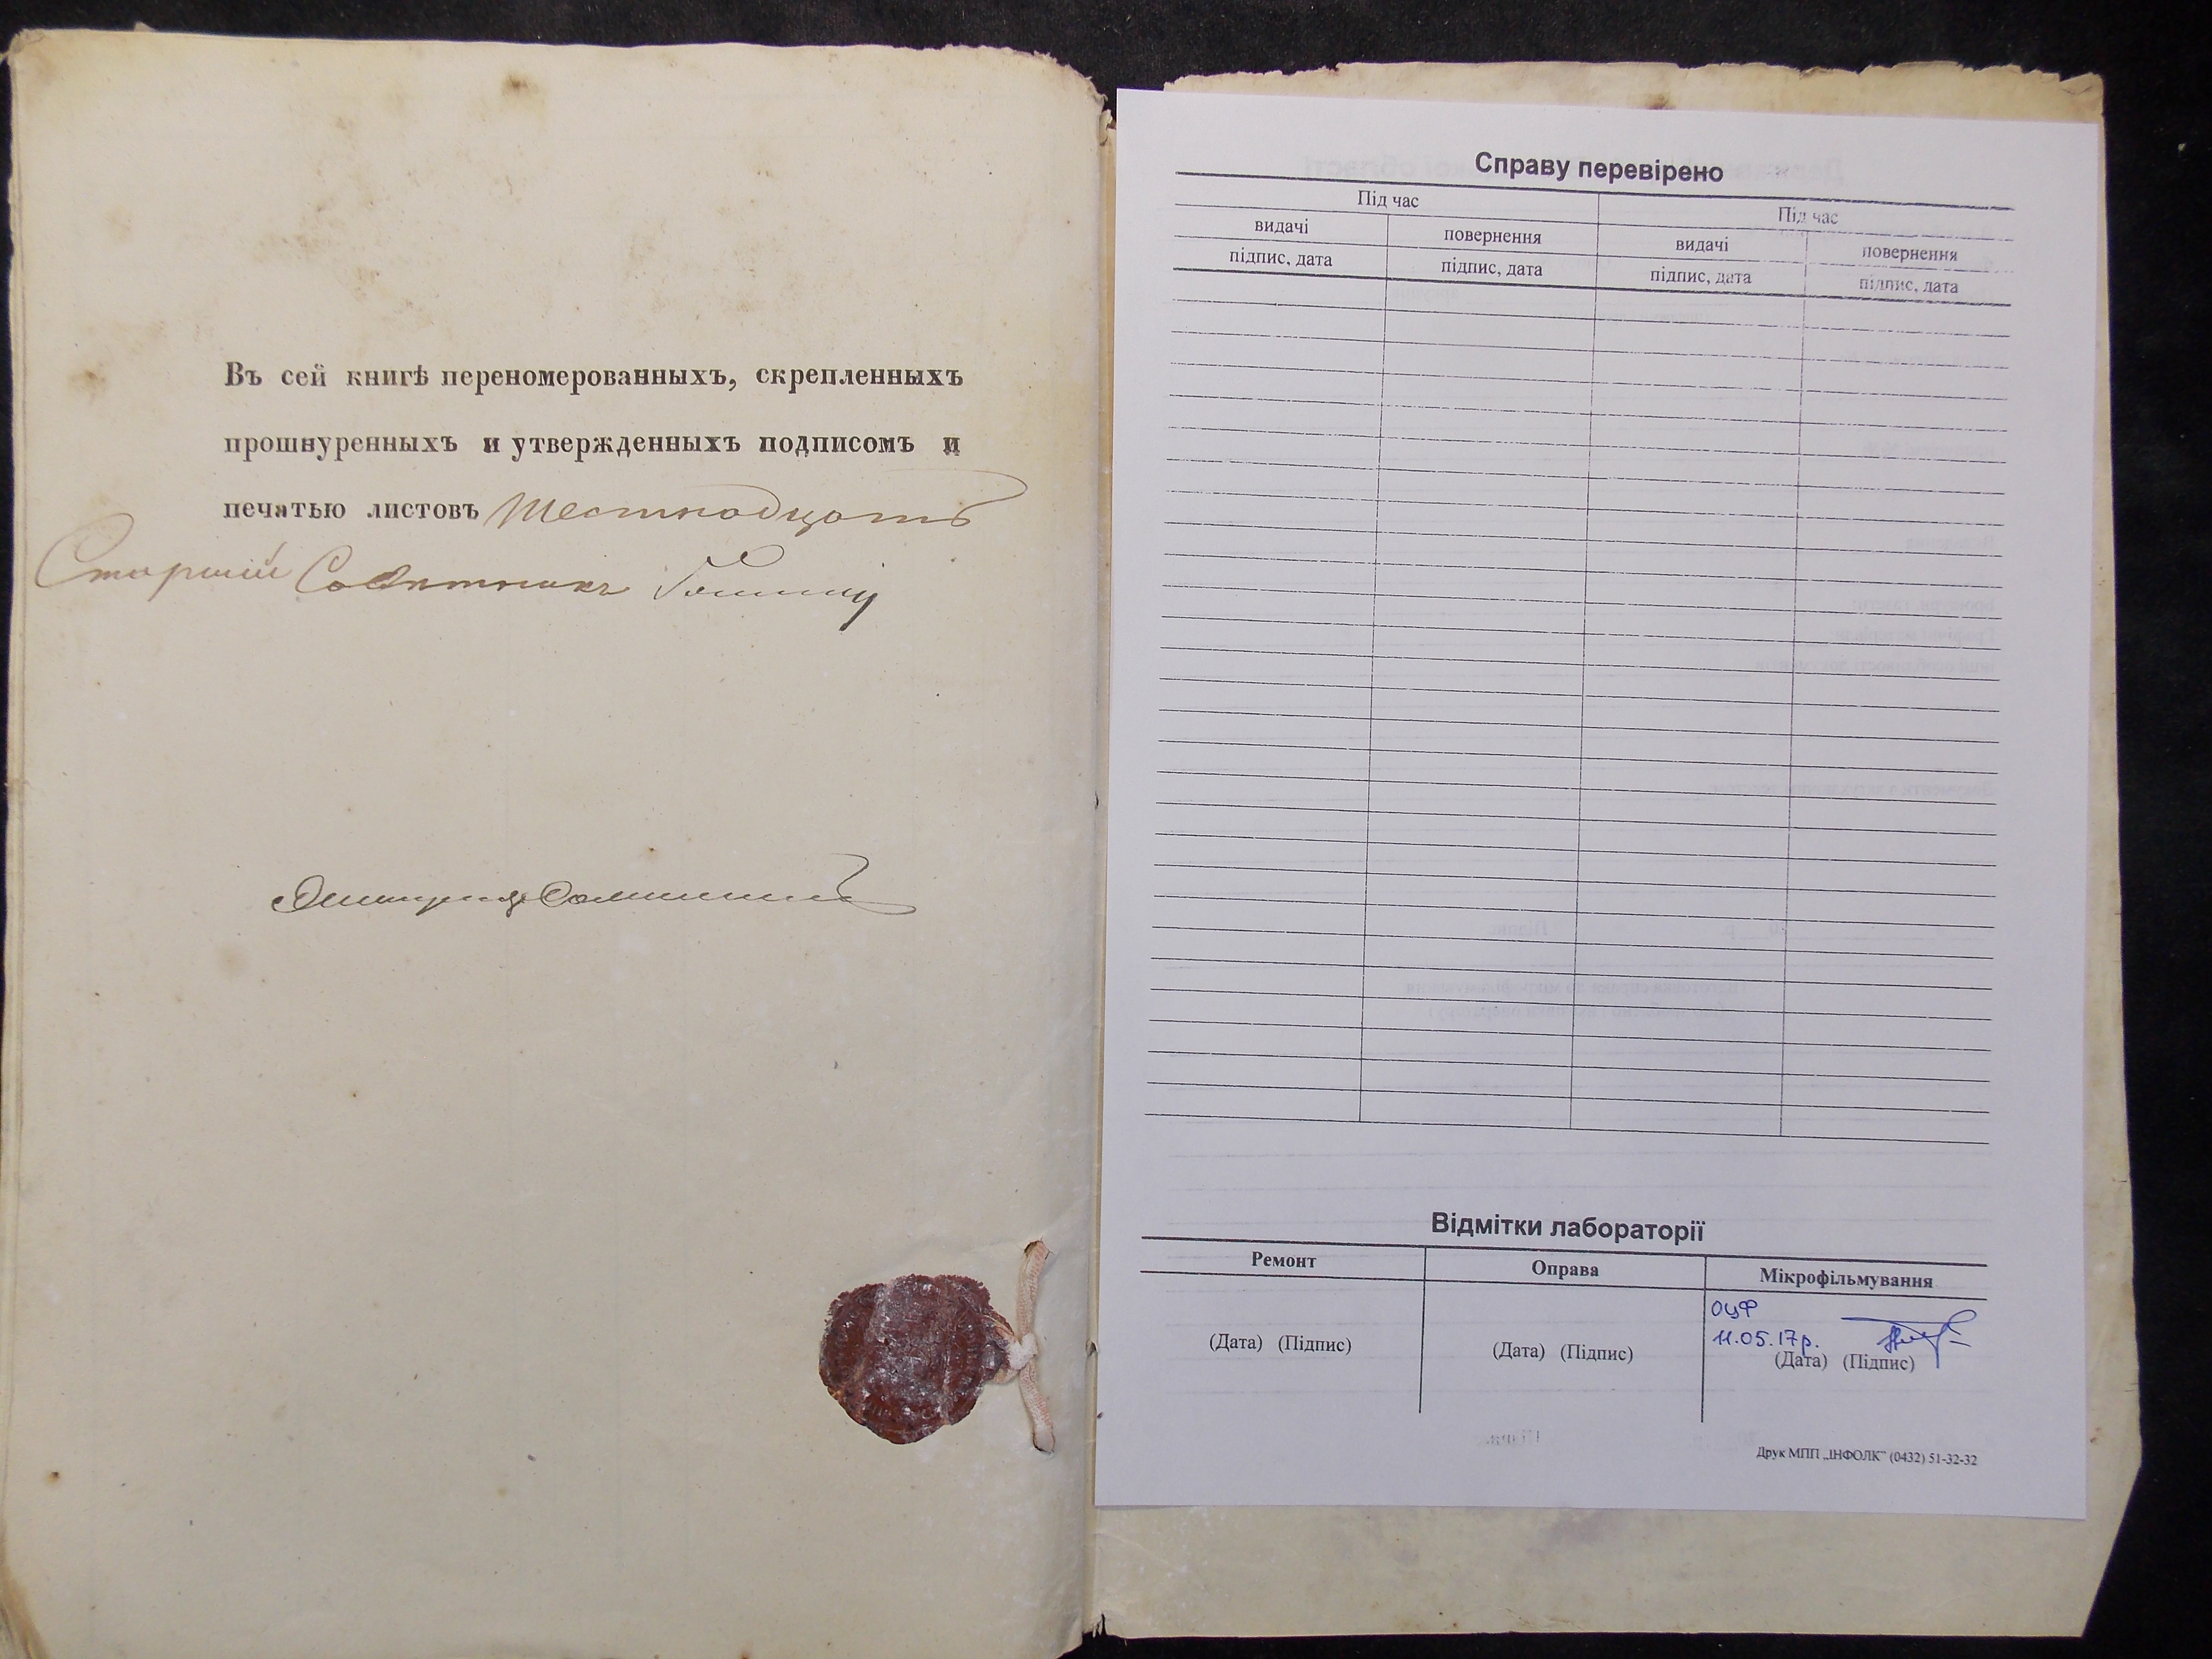 Въ сей книгѣ переномерованныхъ, скрепленныхъ
прошнуренныхъ и утвержденныхъ подписомъ и
печатью листовъ Шестнадцать
Старшій Совѣтникъ
Справу перевірено
Під час
Під час
видачі
повернення
видачі
повернення
підпис, дата
підпис, дата
підпис, дата
підпис, дата
Відмітки лабораторії
Ремонт
Оправа
Мікрофільмування
ОЦФ
11.05.17р.
(Дата) (Підпис)
(Дата) (Підпис)
(Дата) (Підпис)
Друк МПП „ІНФОЛК" (0432) 51-32-32